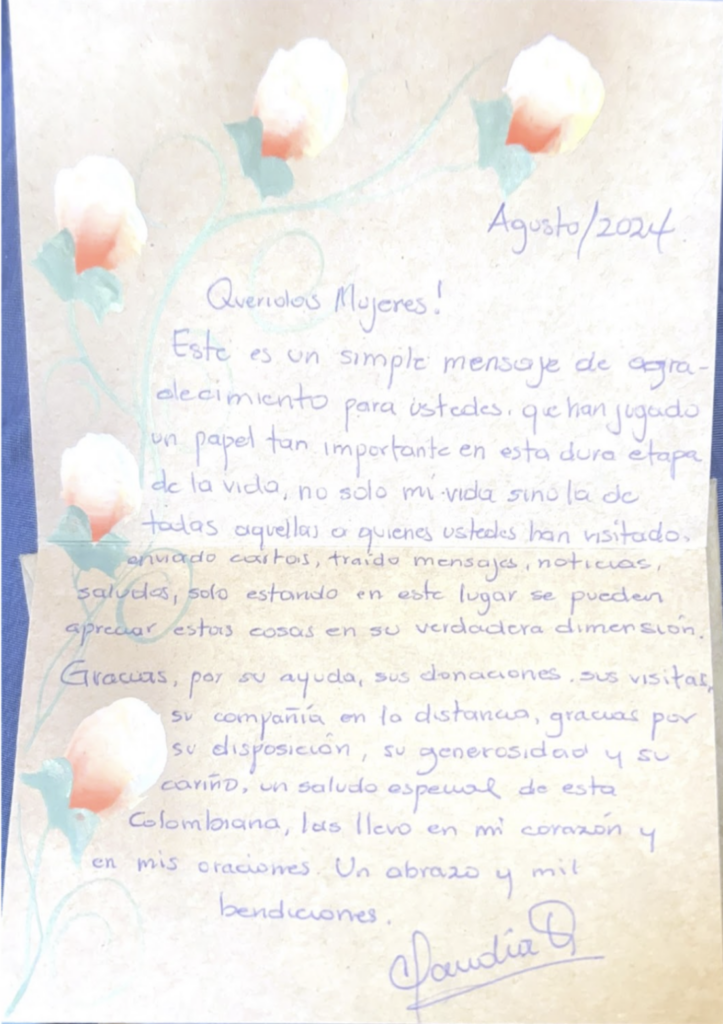 Agosto/2024
Queridas Mujeres!
Este es un simple mensaje de agra-
decimiento para ustedes, que han jugado
un papel tan importante en esta dura etapa
de la vida, no solo mi vida sino la de
todas aquellas a quienes ustedes han visitado,
enviado cartas, traído mensajes, noticias,
saludos, solo estando en este lugar se pueden
apreciar estas cosas en su verdadera dimensión.
Gracias, por su ayuda, sus donaciones, sus visitas,
su compañía en la distancia, gracias por
su disposición, su generosidad y su
cariño, un saludo especial de esta
Colombiana, las llevo en mi corazón y
en mis oraciones. Un abrazo y mil
bendiciones.
Claudia Q